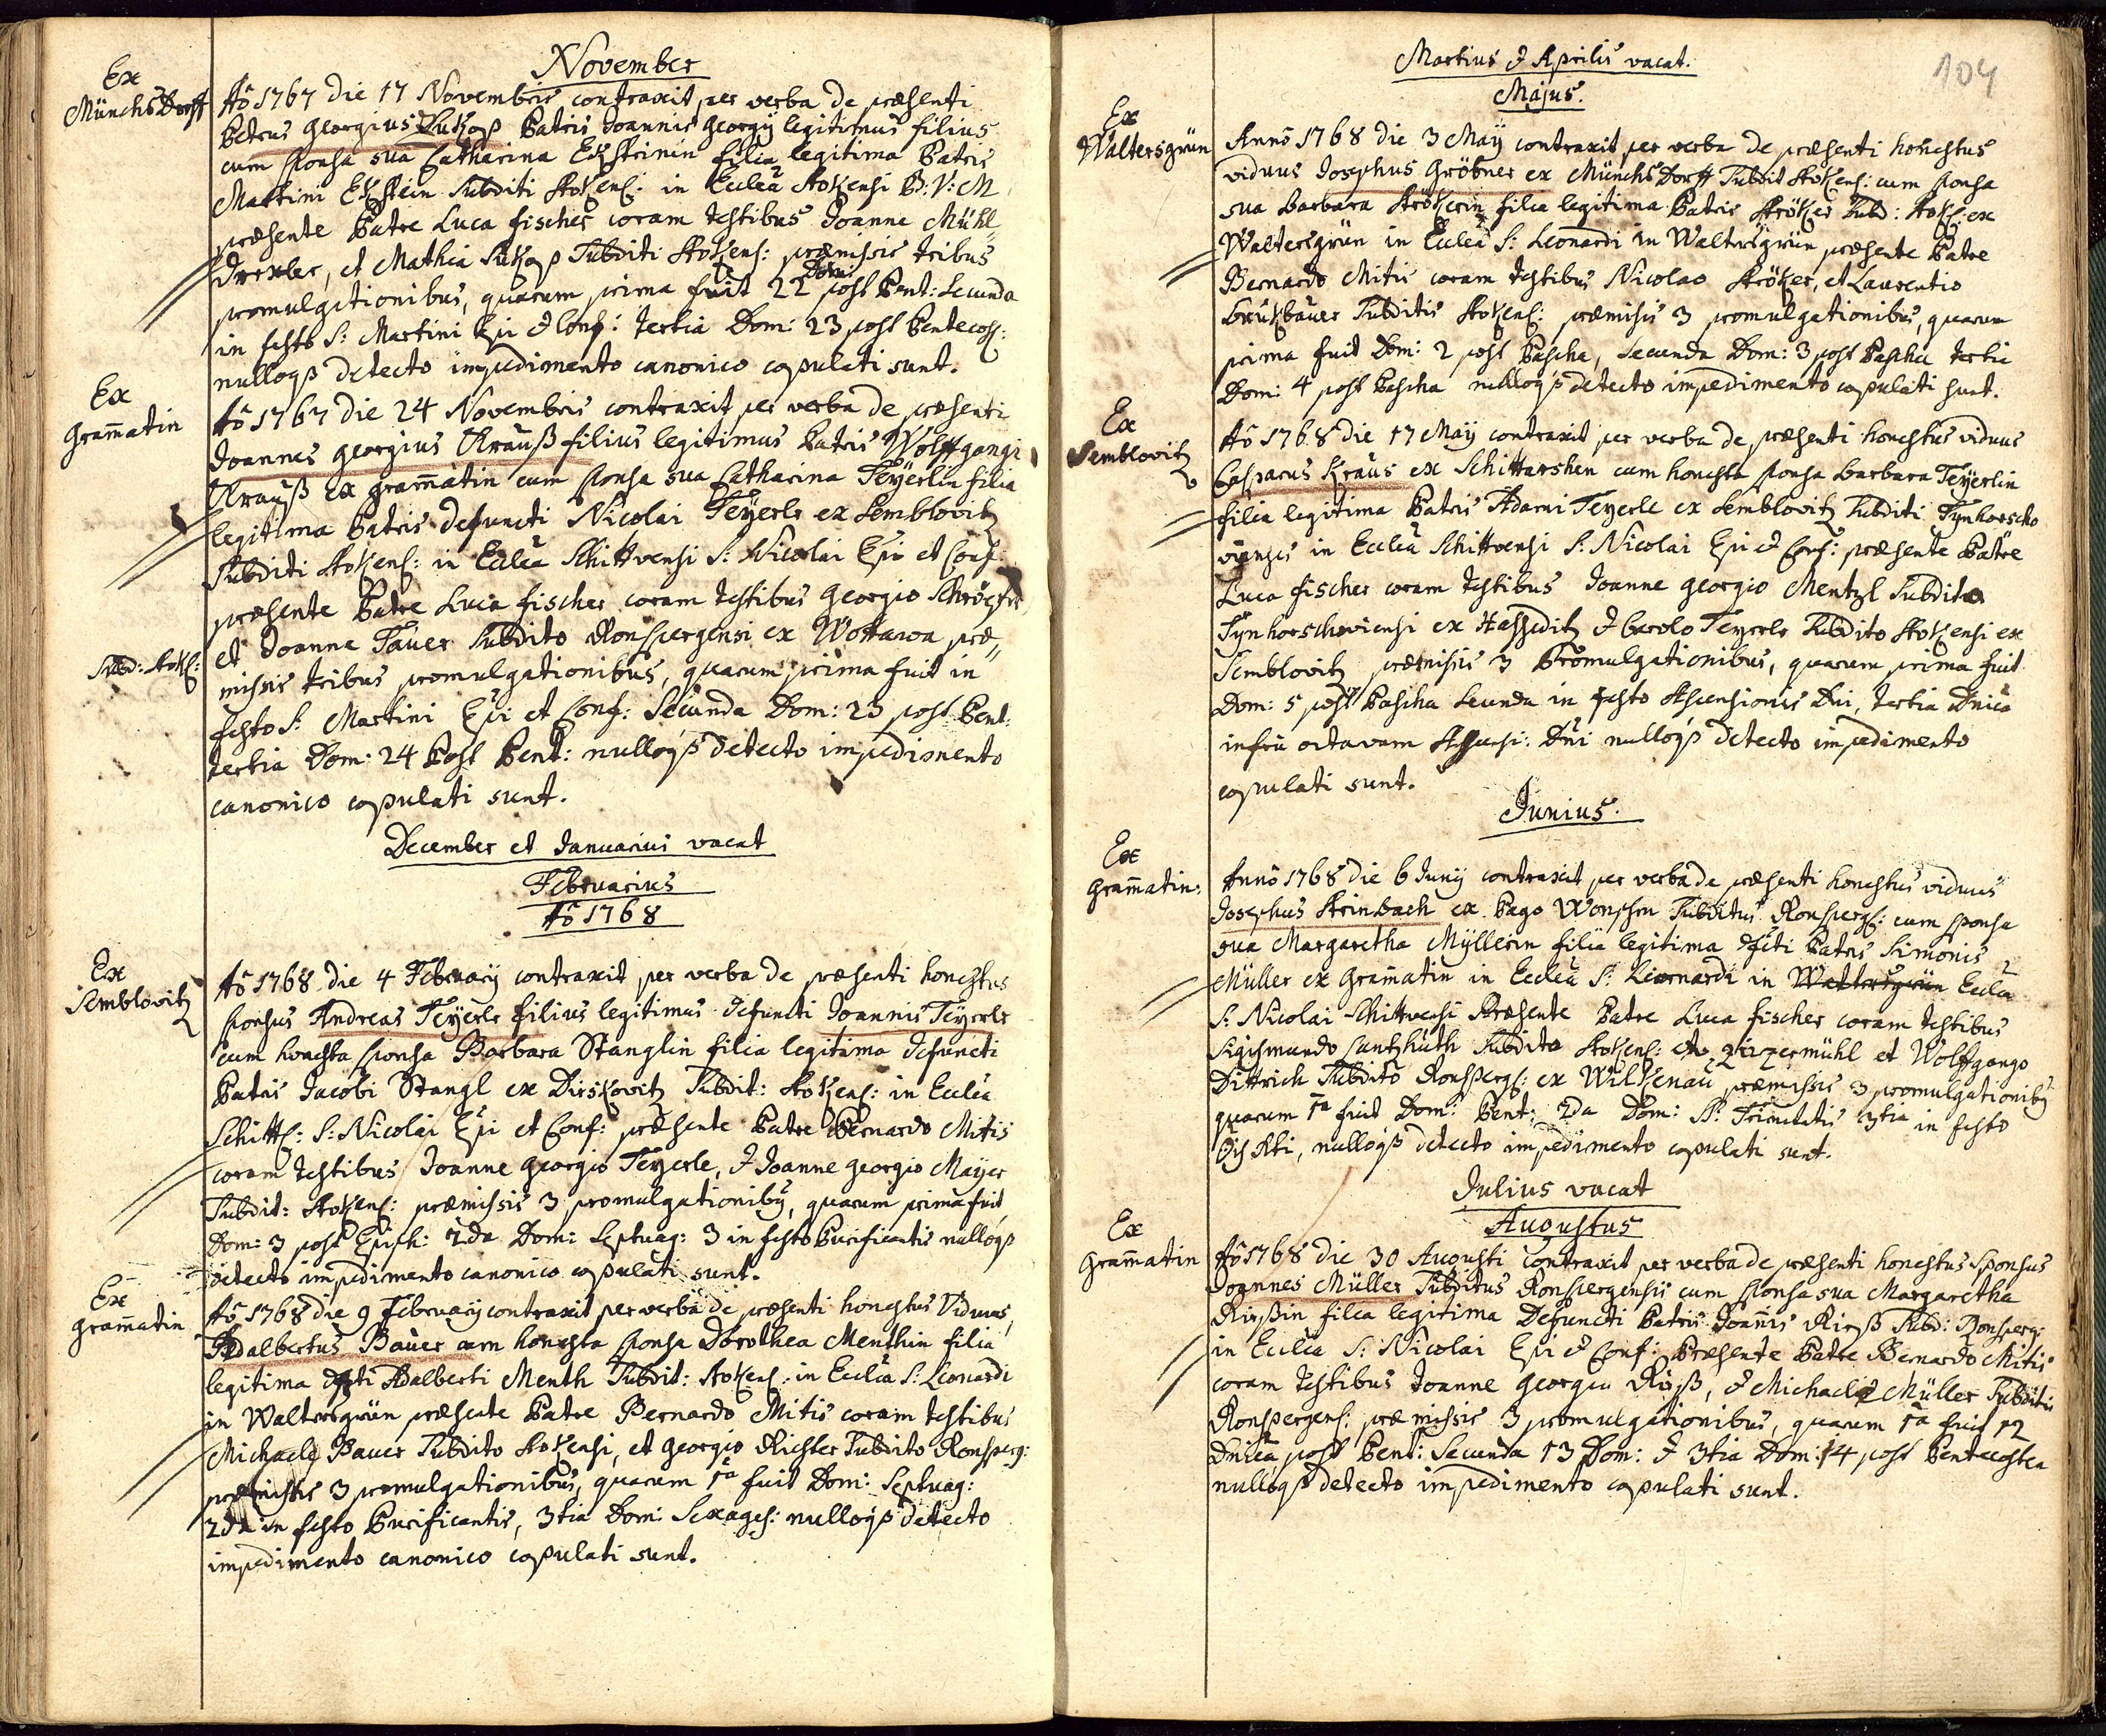 November
Ex
MünchsDorff
Aô 1767 die 17 Novembris contraxit per verba de præsenti
Petrus Georgius Patris Joannis Georgÿ legitimus filius
cum sponsa sua Catharina Ekhsteinin filia legitima Patris
Martini Ekhstein Subditi Stokens: in Eccleâ Stokensi B: V: M
præsente Patre Luca fischer coram testibus Joanne Mühl
Drexler, et Mathia Subditi Stokens: præmissis tribus
promulgationibus, quarum prima fuit 22 Dom: post Pent: Secunda
in festo S: Martini Epi & Conf: tertia Dom: 23 post Pentecos:
nulloqs detecto impedimento canonico copulati sunt.
Ex
Gram̄atin
Aô 1767 die 24 Novembris contraxit per verba de præsenti
Joannes Georgius Krauß filius legitimus Patris Wolffgangi
Krauß ex Gram̄atin cum sponsa sua Catharina Teÿerlin filia
legitima Patris defuncti Nicolai Teÿerle ex Semblovitz
Subditi Stokens: in Eccleâ Schittvensi S: Nicolai Epi et Conf:
præsente Patre Luca fischer coram testibus Georgio
et Joanne Tauer Subdito Ronspergensi ex Wottawa præ„
Subd: Stok:
missis tribus promulgationibus, quarum prima fuit in
festo S: Martini Epi et Conf: Secunda Dom: 23 post Pent:
tertia Dom: 24 Post Pent: nulloqs detecto impedimento
canonico copulati sunt.
December et Januarius vacat
Februarius
Aô 1768
Ex
Semblovitz
Aô 1768 die 4 Februarÿ contraxit per verba de præsenti honestus
sponsus Andreas Teÿerle filius legitimus defuncti Joannis Teÿerle
cum honesta sponsa Barbara Stanglin filia legitima defuncti
Patris Jacobi Stangl ex Dirskovitz Subdit: Stokens: in Eccleâ
Schitts: S: Nicolai Epi et Conf: præsente Patre Bernardo Mitis
coram testibus Joanne Georgio Teyerle, & Joanne Georgio Maÿer
Subdit: Stokens: præmissis 3 promulgationibq, quarum prima fuit
Dom: 3 post Epiph: 2da Dom: Septuag: 3 in festo Purificantis nulloqs
detecto impedimento canonico copulati sunt.
Ex
Gram̄atin
Aô 1768 die 9 Februarÿ contraxit per verba de præsenti honestus Viduus,
Adalbertus Bauer cum honesta sponsa Dorothea Menthin filia
legitima dfti Adalberti Menth Subdit: Stokens: in Eccleâ S: Leonardi
in Waltersgrün præsente Patre Bernardo Mitis coram testibus
Michaele Bauer Subdito Stokensi, et Georgio Richter Subdito Ronsperg:
præmissis 3 promulgationibus, quarum 1a fuit Dom: Septuag:
2da in festo Purificantis, 3tia Dom: Sexages: nulloqs detecto
impedimento canonico copulati sunt.
104
Martius & Aprilis vacat.
Majus.
Ex
Waltersgrün
Annô 1768 die 3 Maÿ contraxit per verba de præsenti honestus
viduus Josephus Gröbner ex MünchsDorff Subdit Stokens: cum sponsa
sua Barbara Strökerin filia legitima Patris Ströker Subd: Stok: ex
Waltersgrün in Eccleâ S: Leonardi in Waltersgrün præsente Patre
Bernardo Mitis coram testibus Nicolao Ströker, et Laurentio
Subditis Stokens: præmisis 3 promulgationibus, quarum
prima fuit Dom: 2 post Pascha, Secunda Dom: 3 post Pascha tertia
Dom: 4 post Pascha nulloqs detecto impedimento copulati sunt.
Ex
Semblovitz
Aô 1768 die 17 Maÿ contraxit per verba de præsenti honestus viduus
Casparus Kraus ex Schittarshen cum honesta sponsa Barbara Teÿerlin
filia legitima Patris Adami Teyerle ex Semblovitz Subditi Tynhorscho
viensis in Eccleâ Schittvensi S: Nicolai Epi & Conf: præsente Patre
Luca fischer coram testibus Joanne Georgio Mentzl Subdito
Tynhorschoviensi ex & Carolo Teyerle Subdito Stokensi ex
Semblovitz præmissis 3 Promulgationibus, quarum prima fuit
Dom: 5 post Pascha Secunda in festo Ascensionis Dni, tertia Dnica
infra octavam Ascensi: Dni nulloqs detecto impedimento
copulati sunt.
Junius.
Ex
Gram̄atin:
Annô 1768 die 6 Junÿ contraxit per verba de præsenti honestus viduus
Josephus Steinbach ex Pago Wonschen Subditus Ronsperg: cum sponsa
sua Margaretha Mÿllerin filia legitima dfcti Patris Simonis
Müller ex Gram̄atin in Eccleâ S: Leornardi in Waltersgrün Eccleâ
S: Nicolai Schittvensi Præsente Patre Luca fischer coram testibus
Sigismundo Lantzhuth Subdito Stokens: et Wolffgango
Dittrich Subditô Ronsperg: ex Wilkenau præmissis 3 promulgationibq
quarum 1a fuit Dom: Pent: 2da Dom: SS: Trinitatis 3tia in festo
nulloqs detecto impedimento copulati sunt.
Julius vacat
Augustus
Ex
Gram̄atin
Aô 1768 die 30 Augusti contraxit per verba de præsenti honestus Sponsus
Joannes Müller Subditus Ronspergensis cum sponsa sua Margaretha
Rießin filia legitima Defuncti Patris Joan̄is Rieß Subd: Ronsperg:
in Eccleâ S: Nicolai Epi & Conf: Præsente Patre Bernardo Mitis
coram testibus Joanne Georgio Rieß, & Michaele Müller Subditis
Ronspergens: præmissis 3 promulgationibus, quarum 1a fuit 12
Dnica post Pent: Secunda 13 Dom: & 3tia Dom: 14 post Pentecosten
nulloqs detecto impedimento copulati sunt.